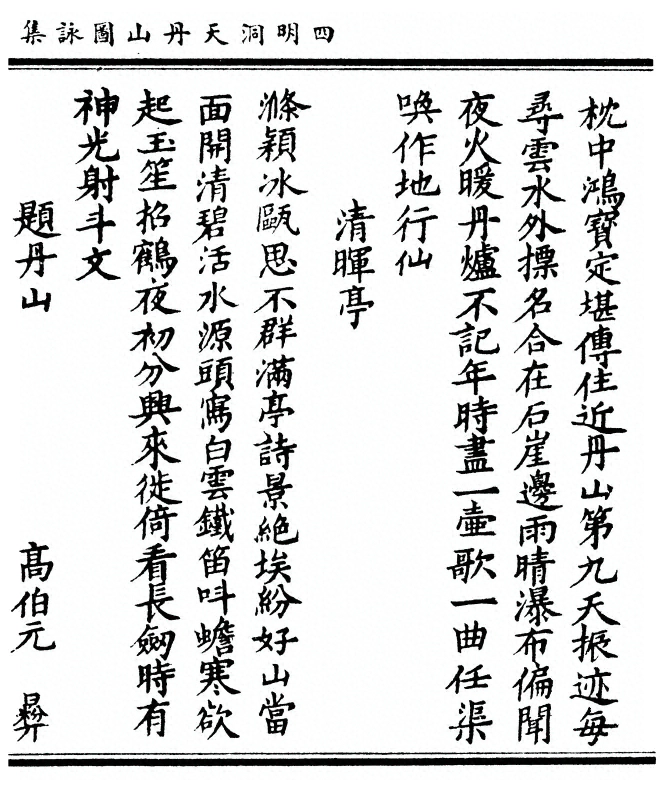 四明洞天丹山圖詠集
枕中鴻寶定堪傳住近丹山第九天振迹每
尋雲水外標名合在石崖邊雨晴瀑布偏聞
夜火暖丹爐不記年時盡一壺歌一曲任渠
喚作地行仙
清暉亭
滌穎冰甌思不群滿亭詩景絕埃紛好山當
面開清碧活水源頭寫白雲鐵笛呌蟾寒欲
起玉笙招鶴夜初分興來徙倚看長劒時有
神光射斗文
題丹山
高伯元 彛